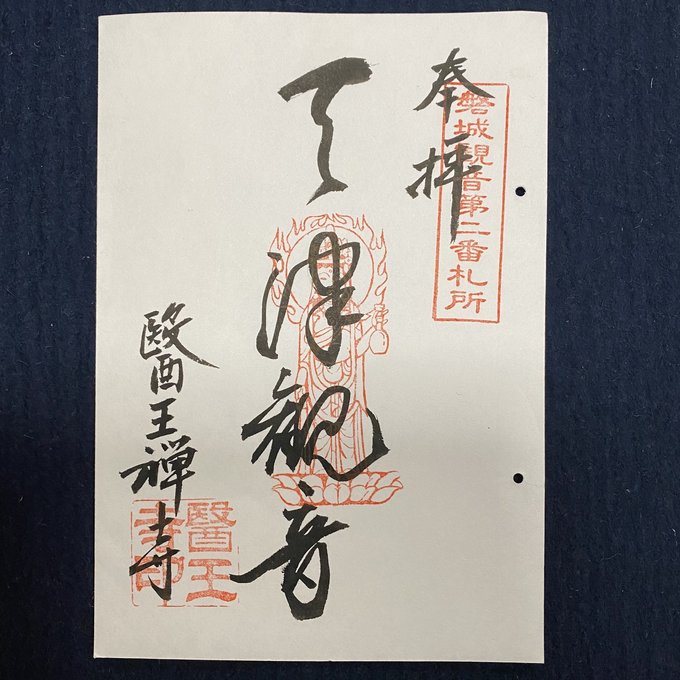 奉拝
磐城観音第二番札所
下津観音
醫王禅寺
醫王
寺印